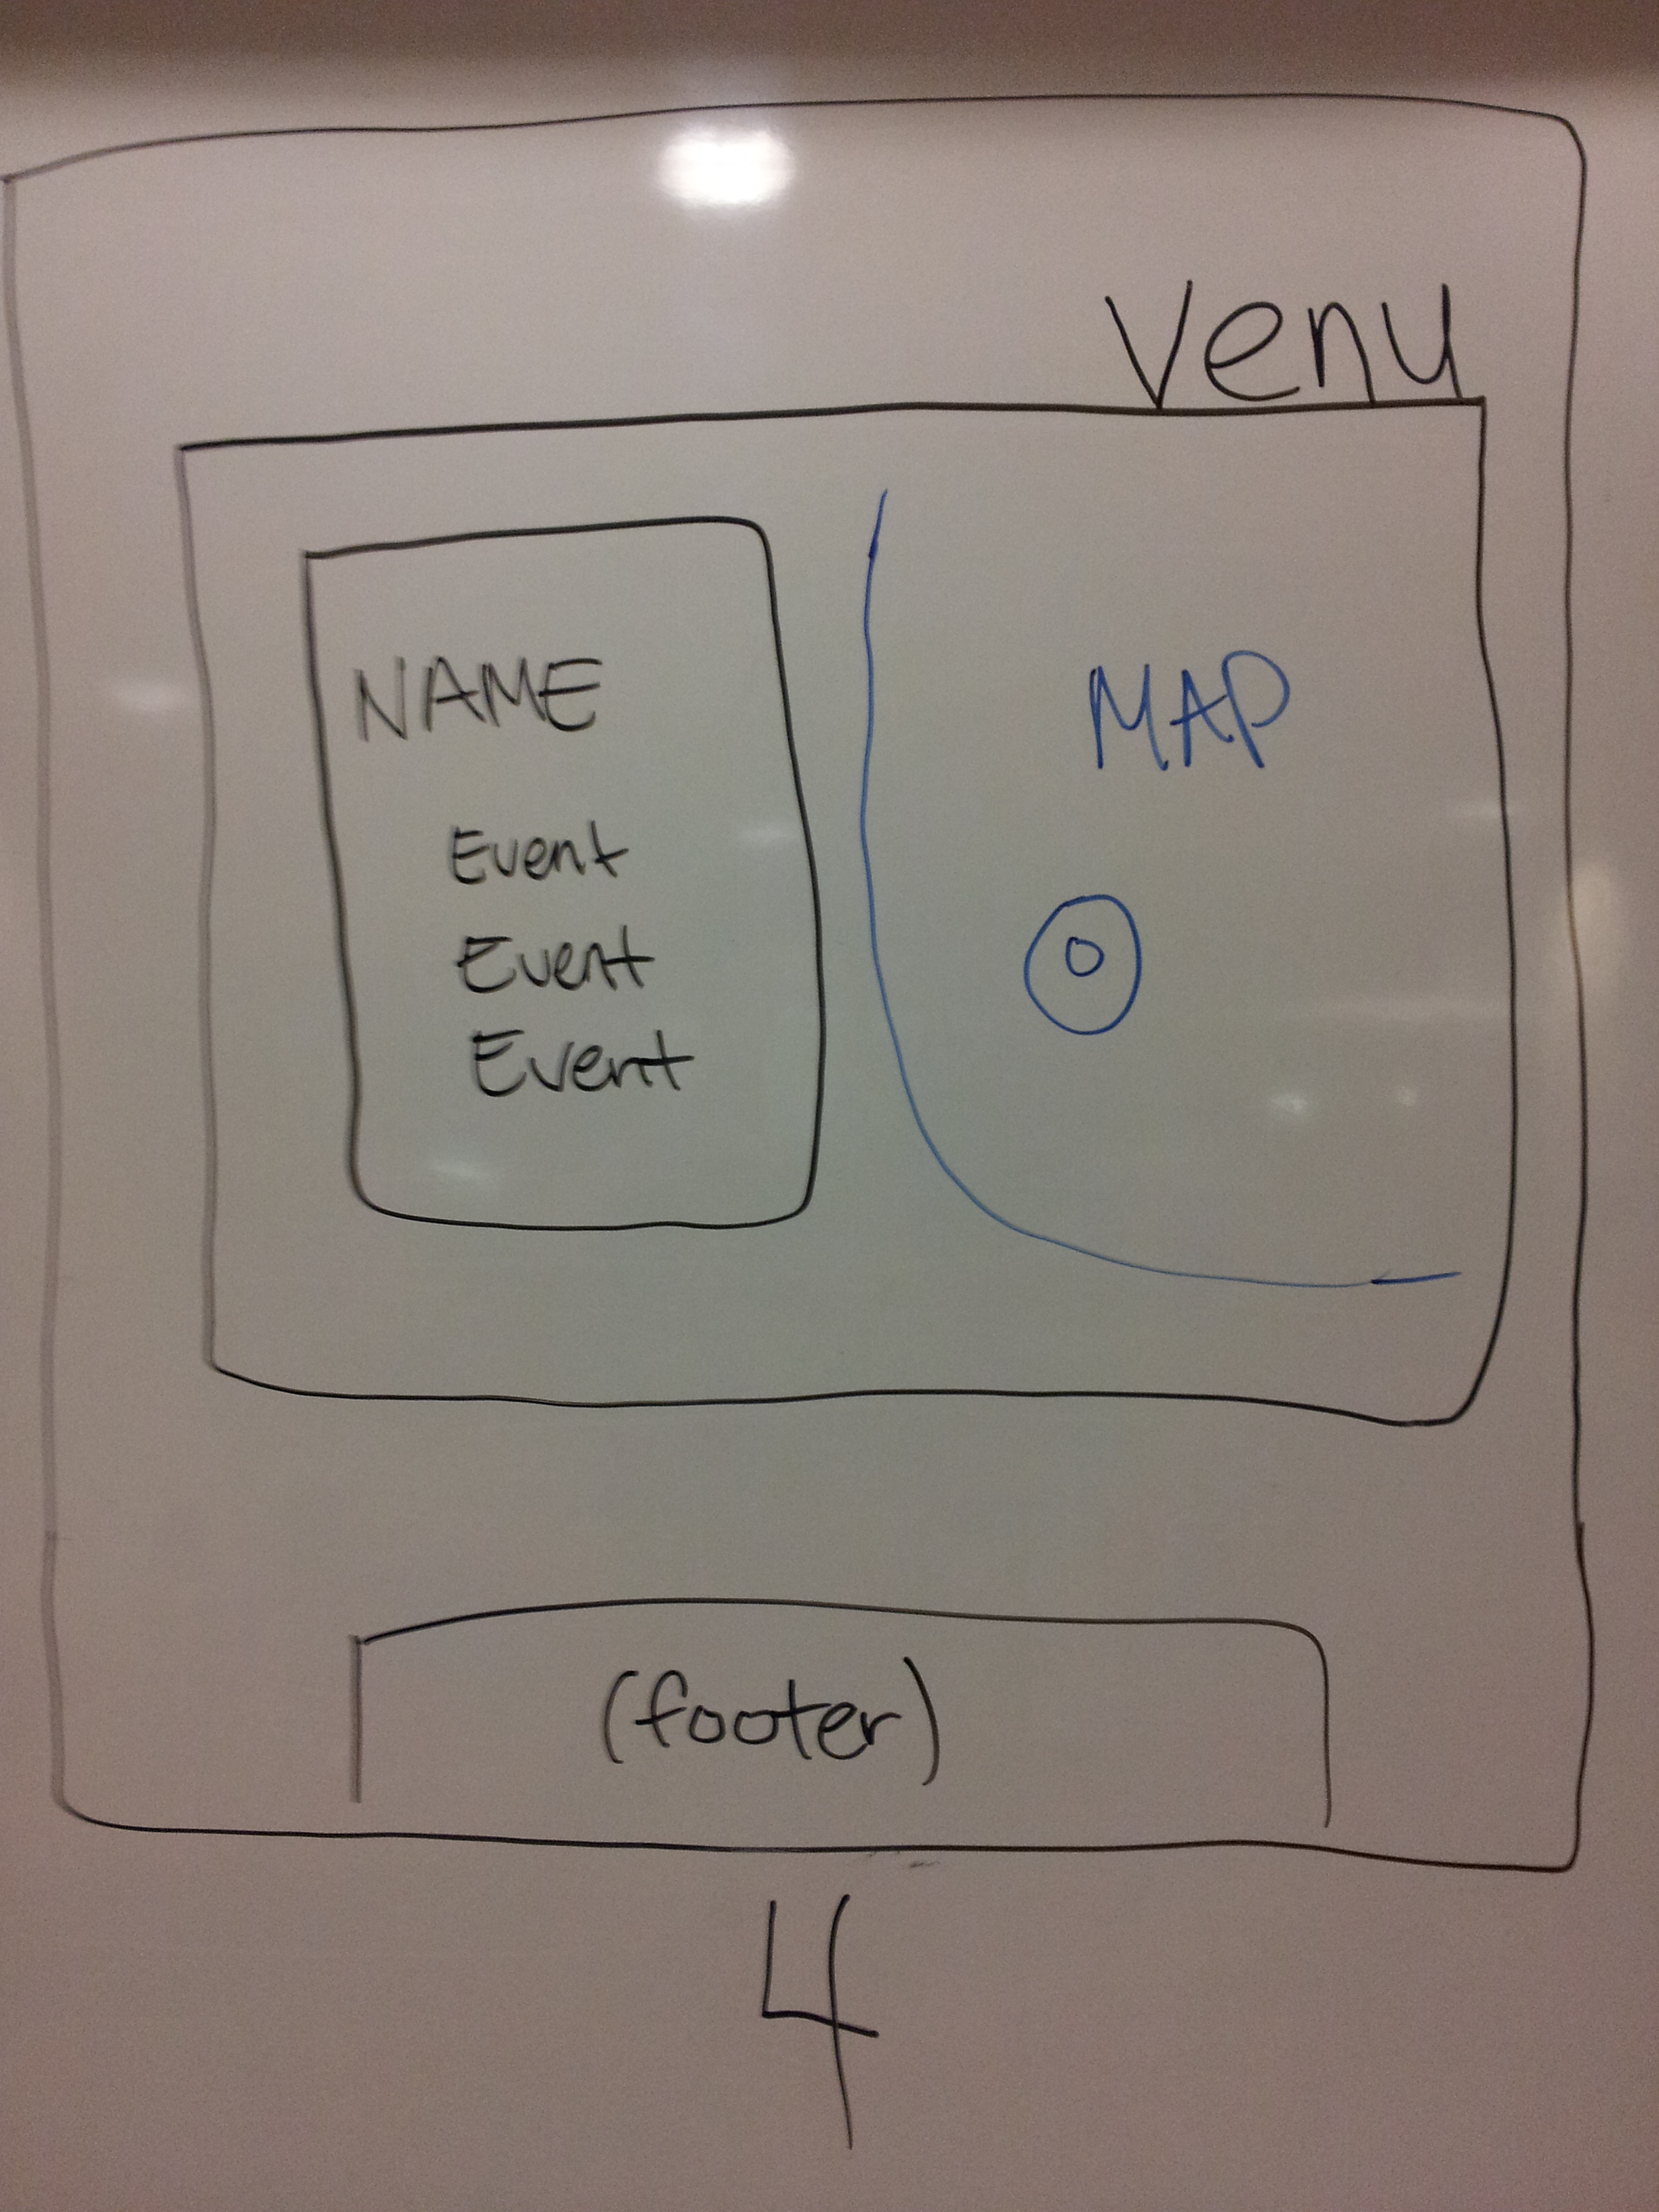 Venu
NAME
Event
Event
Event
MAP
(footer)
4